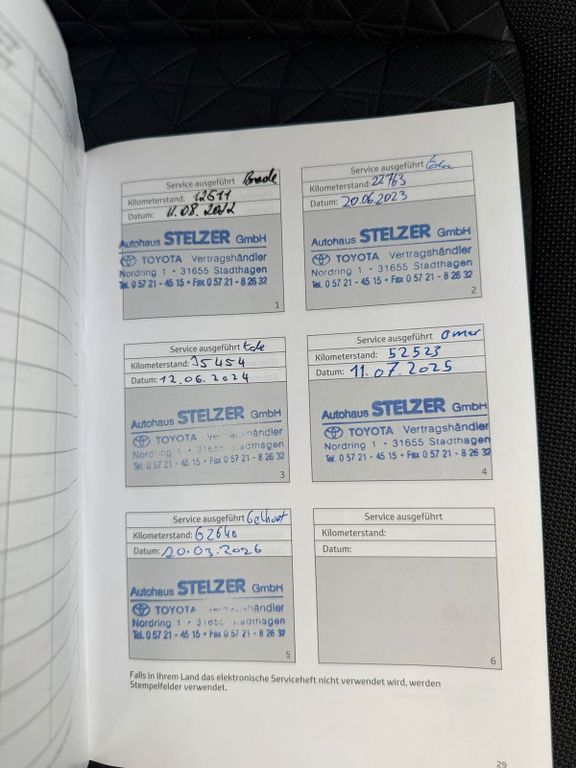 Service ausgeführt
Kilometerstand: 12511
Datum: 11.08.2022
Autohaus STELZER GmbH
TOYOTA Vertragshändler
Nordring 1 • 31655 Stadthagen
Tel. 0 57 21 - 45 15 • Fax 0 57 21 - 8 26 32
1
Service ausgeführt
Kilometerstand: 22763
Datum: 20.06.2023
Autohaus STELZER GmbH
TOYOTA Vertragshändler
Nordring 1 • 31655 Stadthagen
Tel. 0 57 21 - 45 15 • Fax 0 57 21 - 8 26 32
2
Service ausgeführt
Kilometerstand: 35454
Datum: 12.06.2024
Autohaus STELZER GmbH
TOYOTA Vertragshändler
Nordring 1 • 31655 Stadthagen
Tel. 0 57 21 - 45 15 • Fax 0 57 21 - 8 26 32
3
Service ausgeführt Omer
Kilometerstand: 52523
Datum: 11.07.2025
Autohaus STELZER GmbH
TOYOTA Vertragshändler
Nordring 1 • 31655 Stadthagen
Tel. 0 57 21 - 45 15 • Fax 0 57 21 - 8 26 32
4
Service ausgeführt
Kilometerstand: 62640
Datum: 20.03.2026
Autohaus STELZER GmbH
TOYOTA Vertragshändler
Nordring 1 • 31655 Stadthagen
Tel. 0 57 21 - 45 15 • Fax 0 57 21 - 8 26 32
5
Service ausgeführt
Kilometerstand:
Datum:
6
Falls in Ihrem Land das elektronische Serviceheft nicht verwendet wird, werden
Stempelfelder verwendet.
29